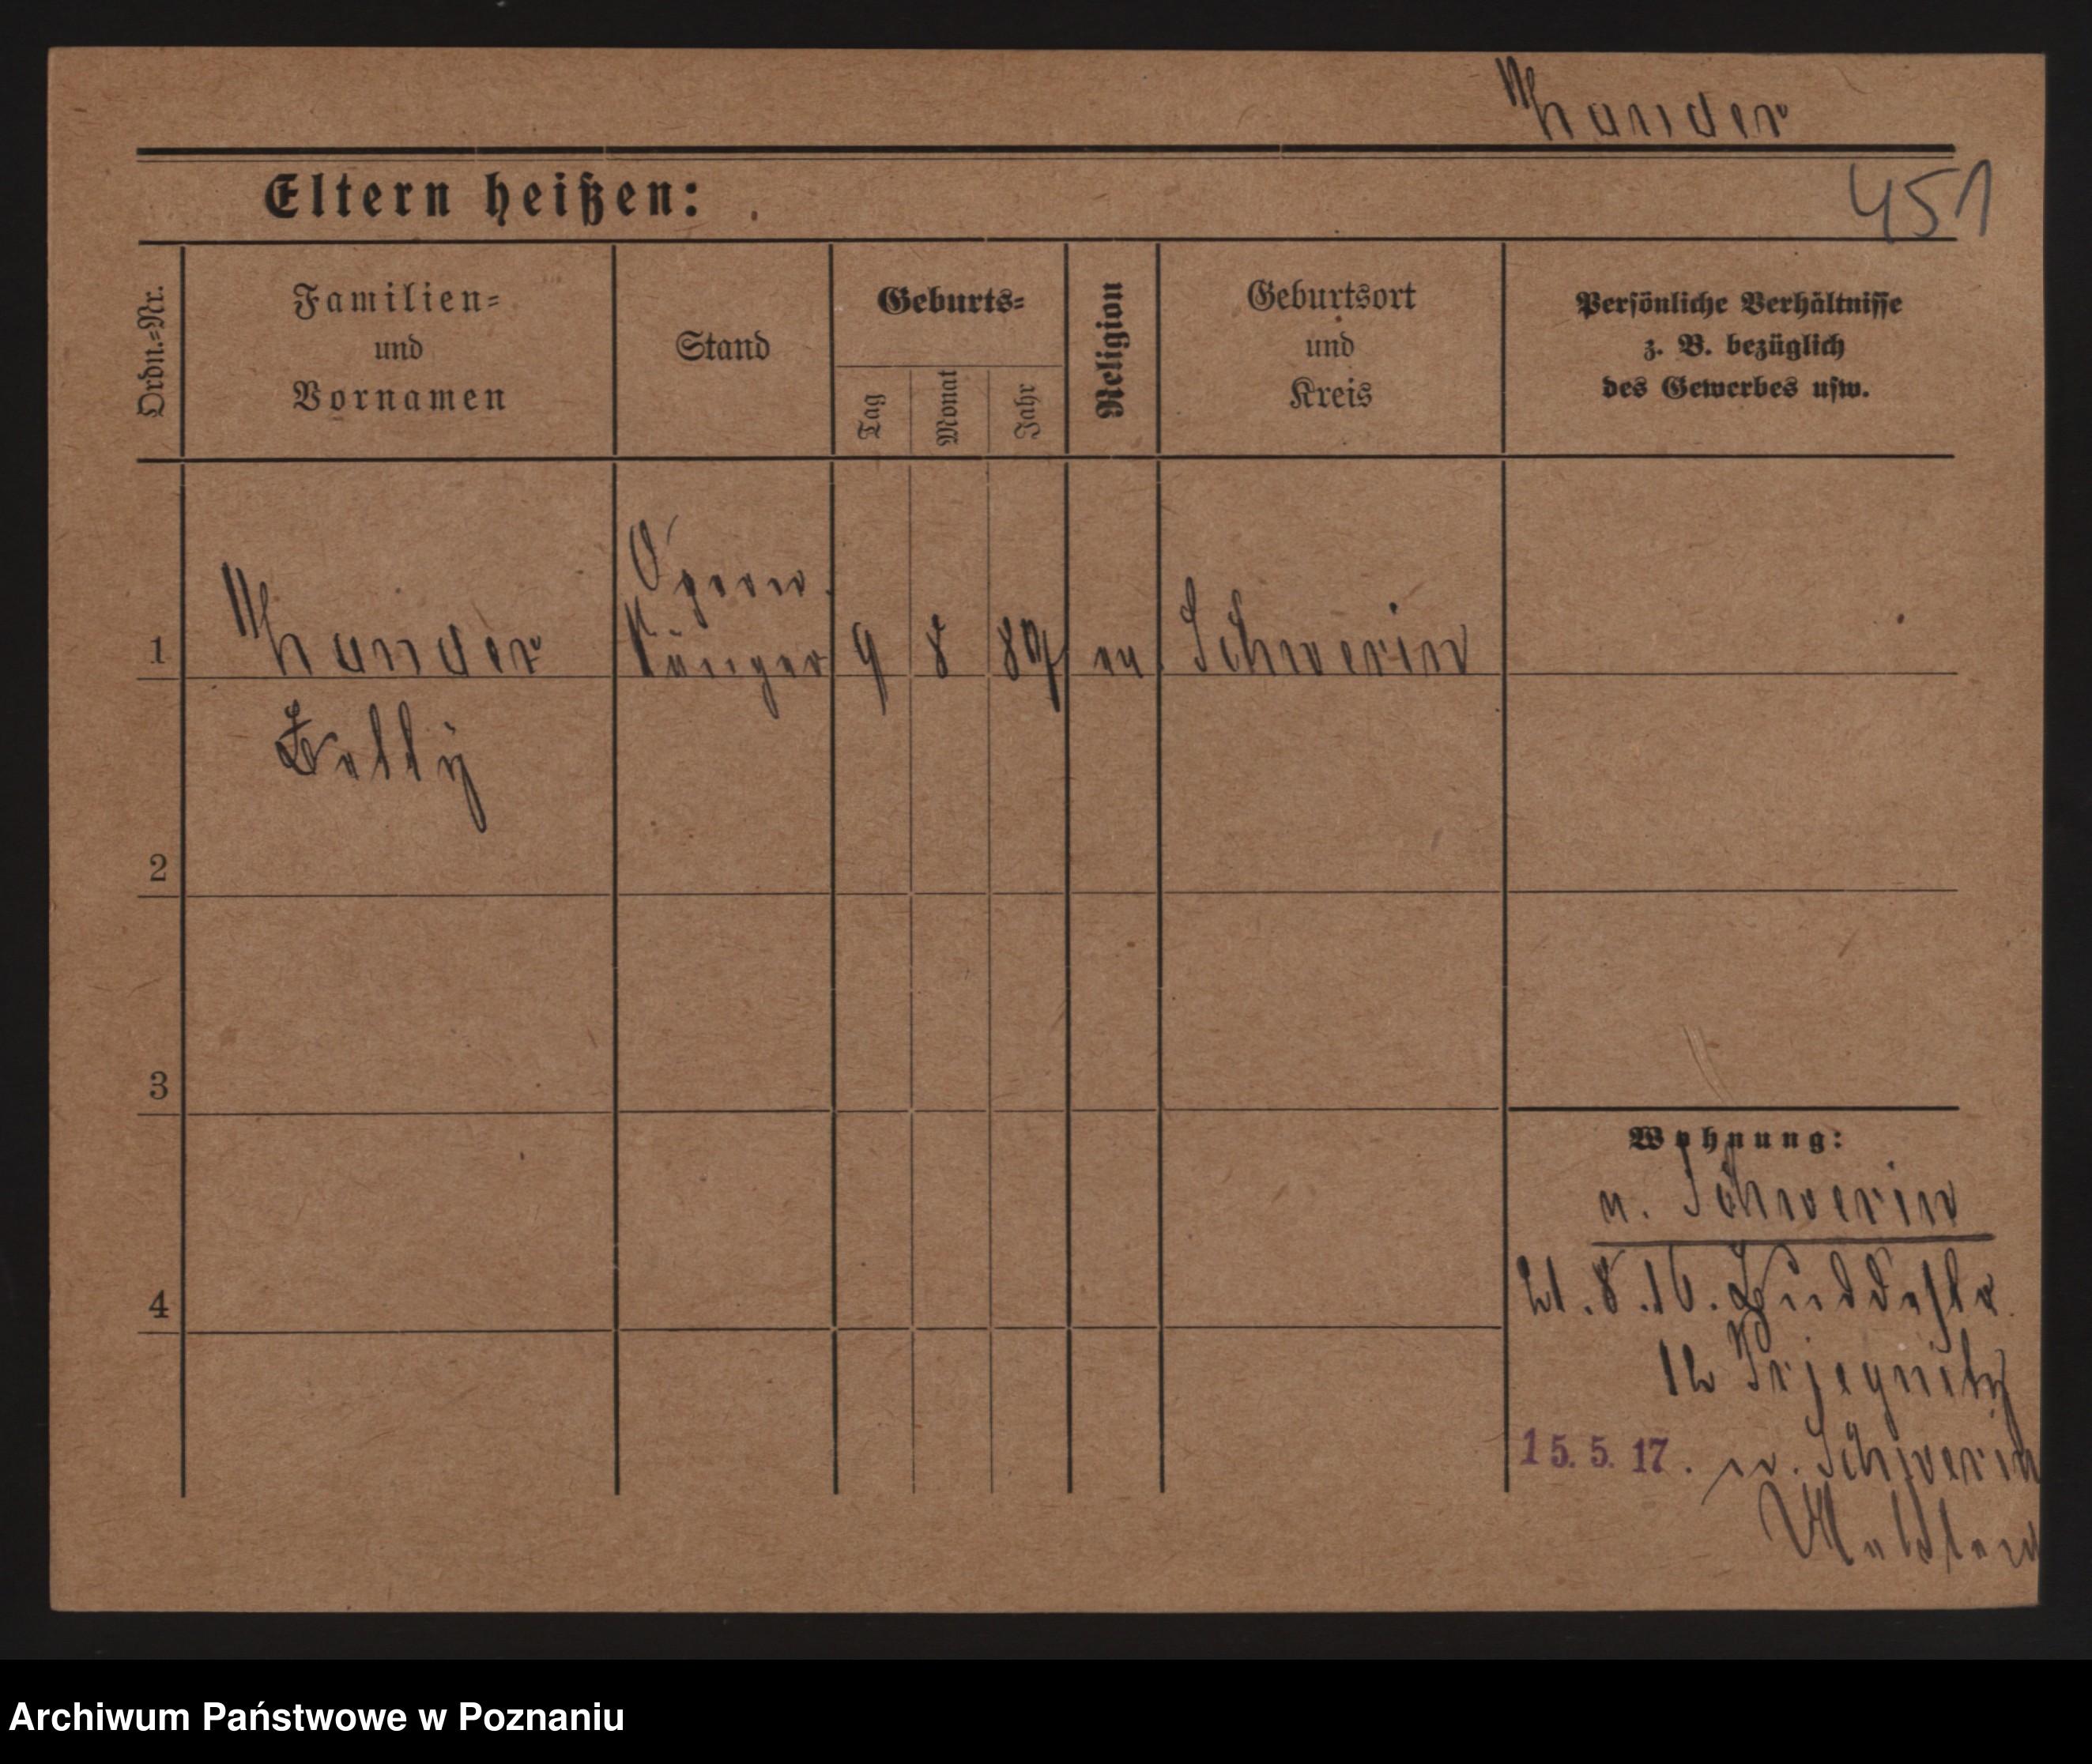 Zander
451
Eltern heißen:
Ordn.=Nr.
Familien=
und
Vornamen
Stand
Geburts=
Tag
Monat
Jahr
Religion
Geburtsort
und
Kreis
Persönliche Verhältnisse
z. B. bezüglich
des Gewerbes usw.
Opern
1
Sänger
9
8
89
Schwerin
2
3
4
Wohnung:
Schwerin
21.8.16. Buddestr.
12
15.5.17. Schwerin
Archiwum Państwowe w Poznaniu